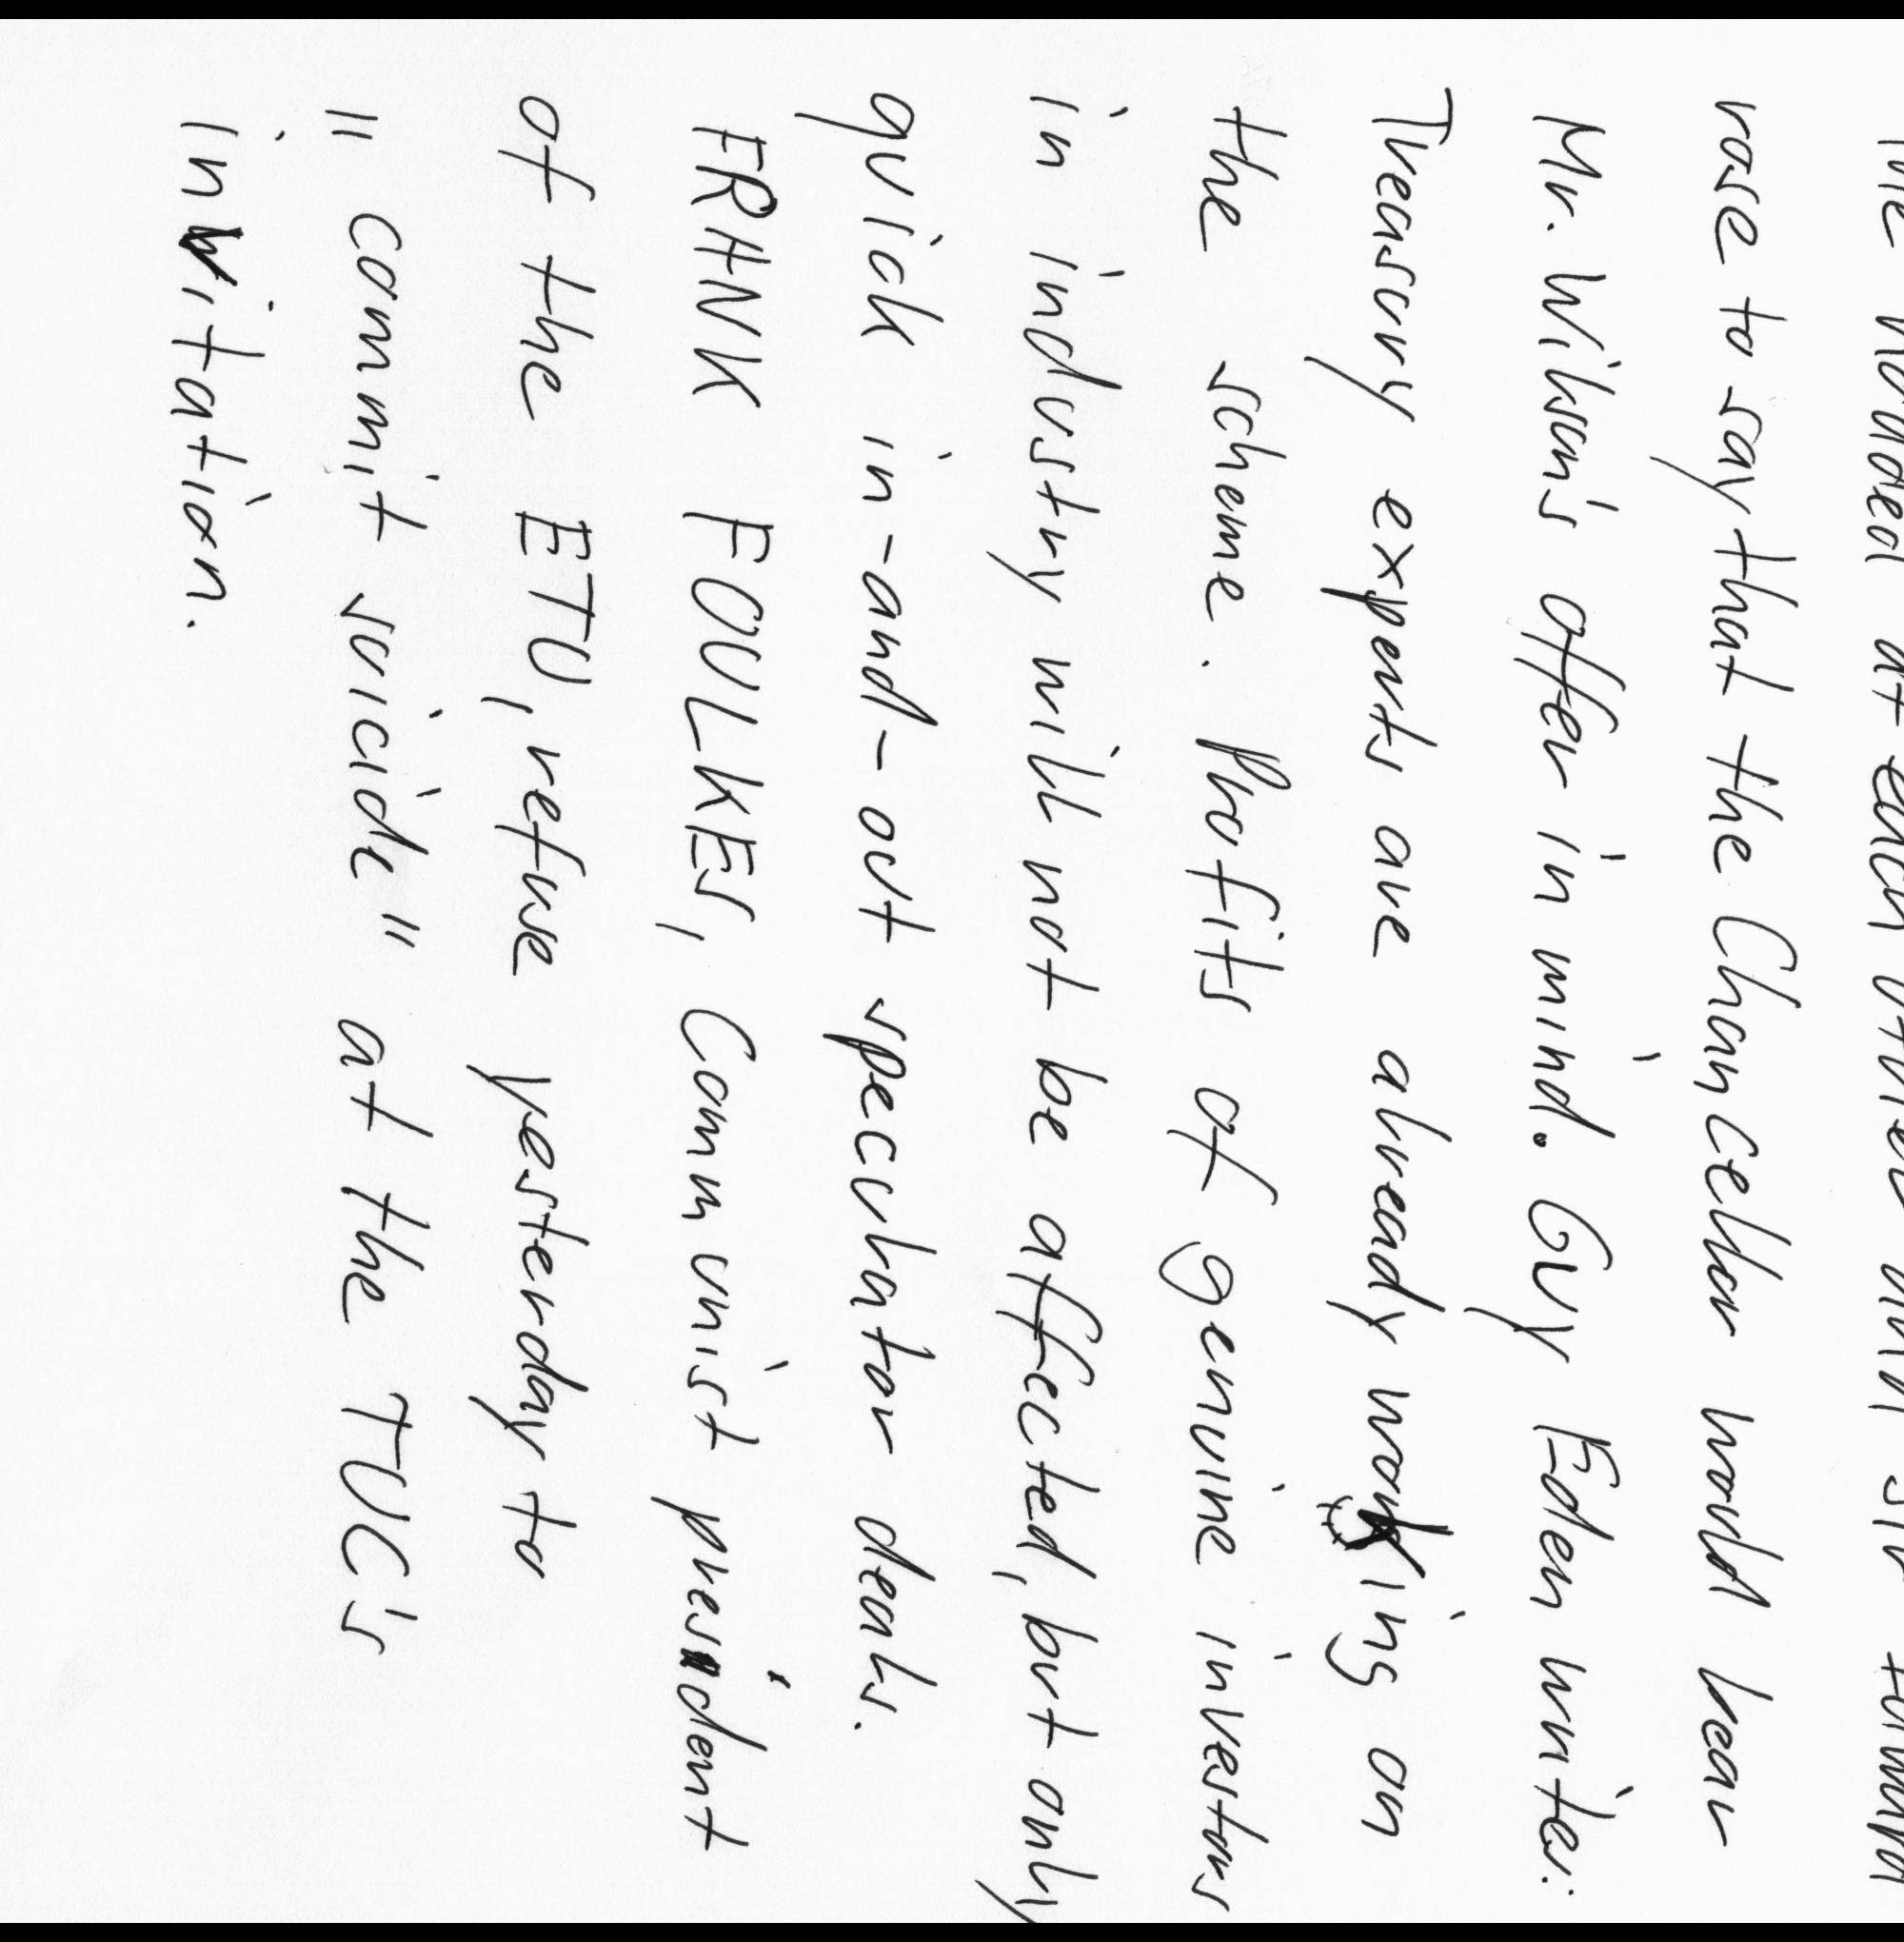 at each other until Sir
rose to say that the Chancellor would bear
Mr. Wilson's offer in mind. Guy Eden writes:
Treasury experts are already working on
the scheme. Profits of genuine investors
in industry will not be affected, but only
quick in-and-out speculator deals.
FRANK FOULKES, Communist president
of the ETU, refuse yesterday to
"commit suicide" at the TUC's
invitation.